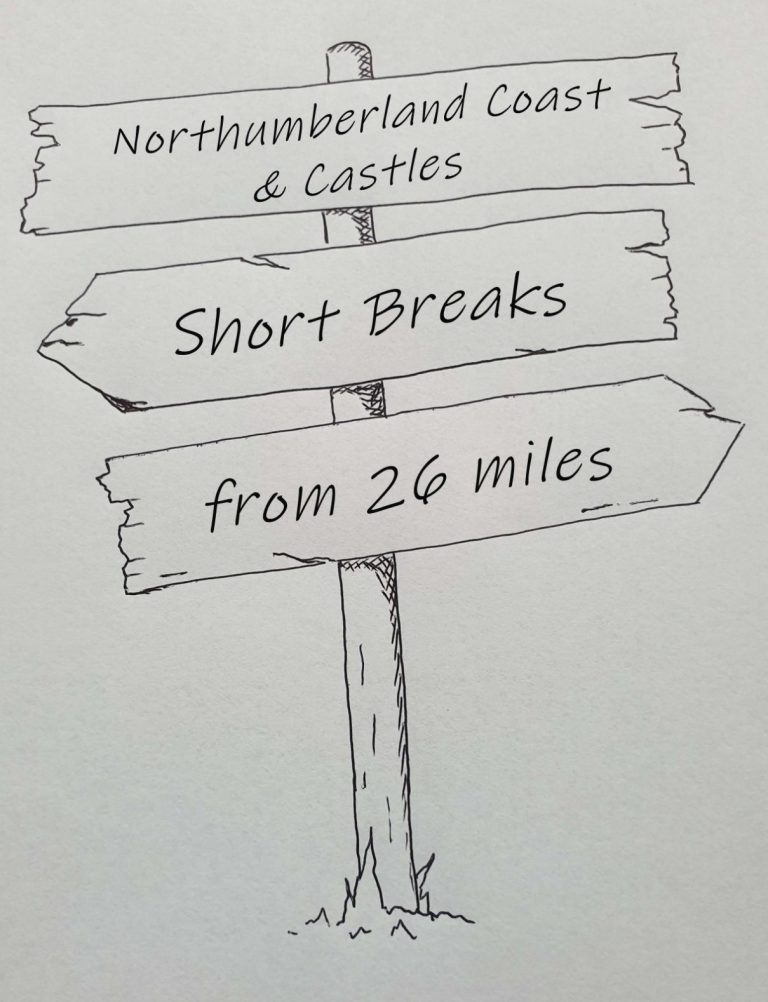 Northumberland Coast
& Castles
Short Breaks
from 26 miles